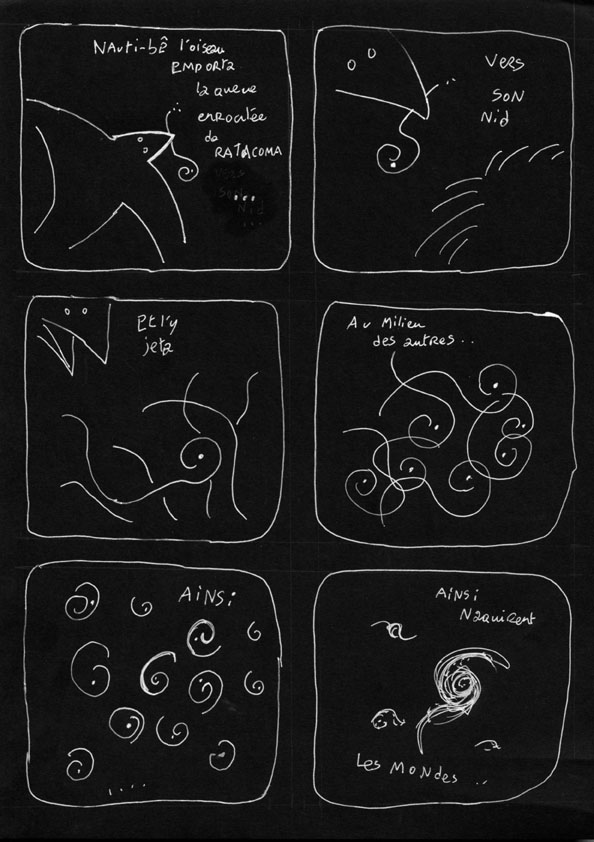 Nauti-bê l'oiseau
EMPORTA
la queue
enroulée
de
RATACOMA
vers
son
Nid
...
Vers
SON
Nid
Et l'y
jeta
Au Milieu
des autres..
AiNSi
....
AiNSi
Naquirent
Les MONdes ..